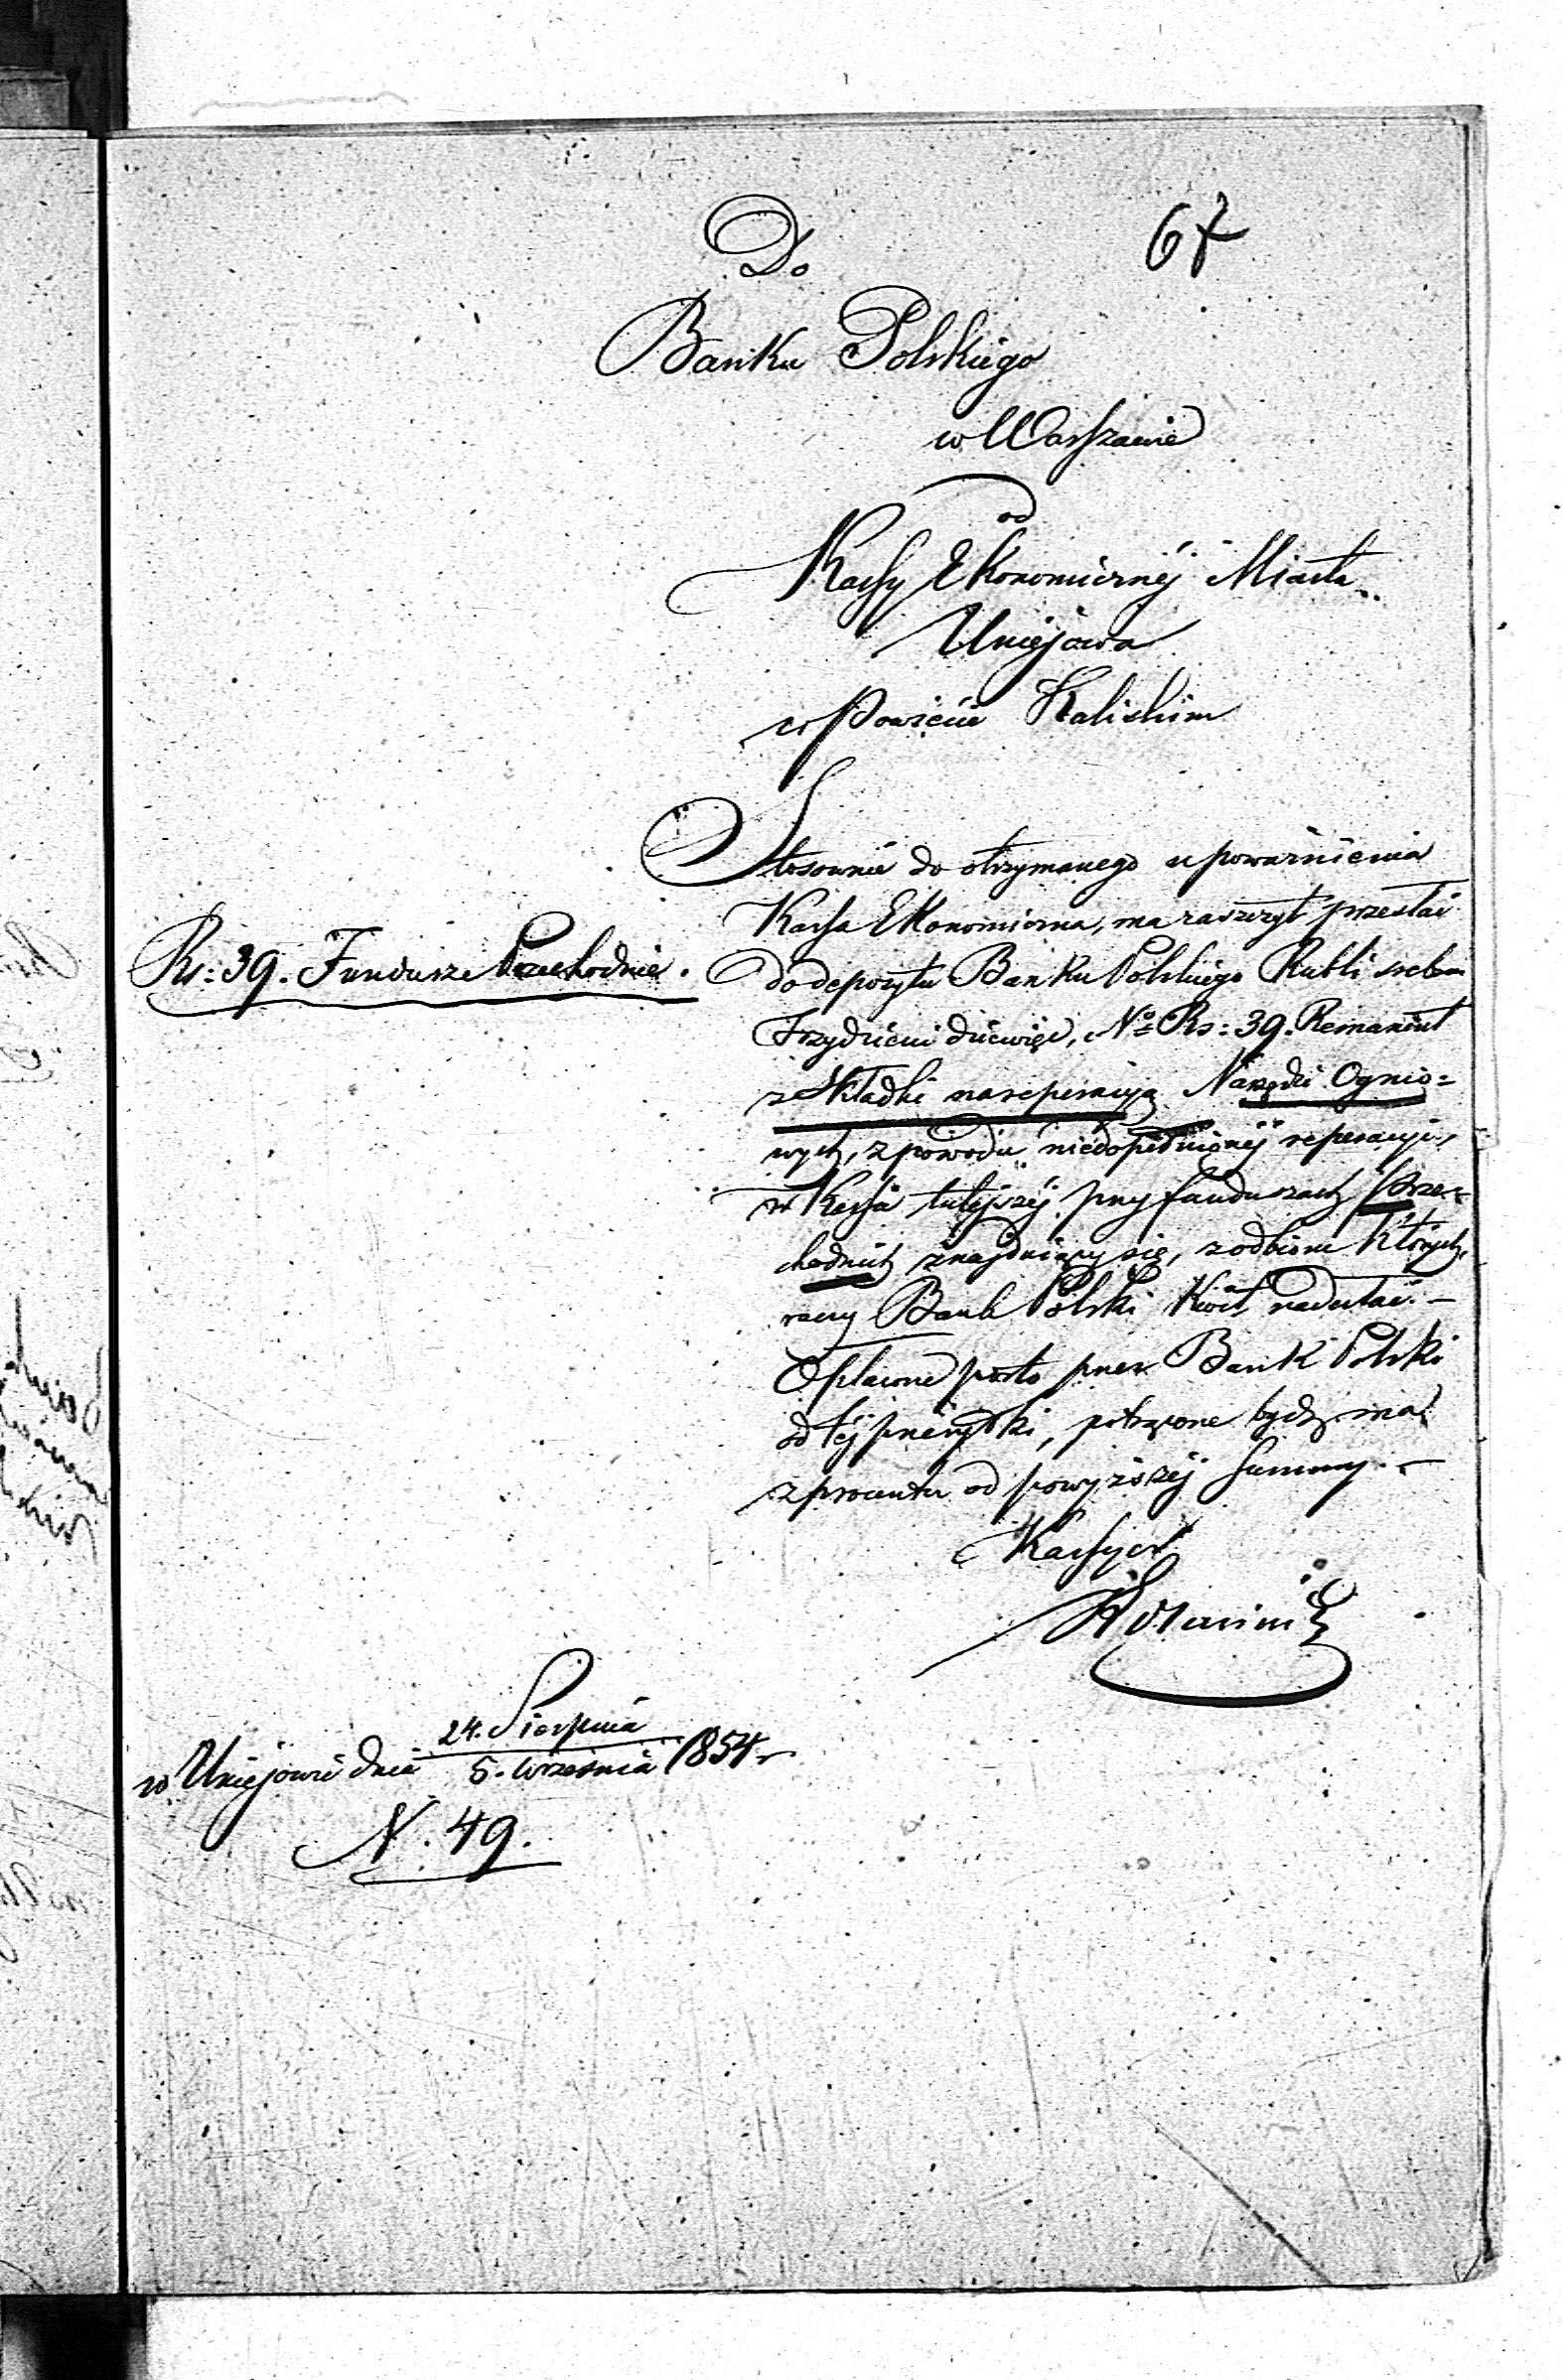 67
Do
Banku Polskiego
w Warszawie
od
Kassy Ekonomicznéj Miasta
Uniejowa
w Powiecie Kaliskim
Stosownie do otrzymanego upoważnienia
Kassa Ekonomiczna, ma zaszczyt przesłać
do depozytu Banku Polskiego Rubli srebrem
Trzydzieści dziewięć, No Rs: 39. Remanent
z Składki na reperacyą Narzędzi Ognio=
wych, z powodu niedopełnionéj reperacyi,
w Kassie tutejszéj przy funduszach Prze=
chodnich znajdujący się, z odbioru których,
raczy Bank Polski Kwit nadesłać. —
Opłacone porto przez Bank Polski
od téj przesyłki, potrącone bydź ma
z procentu od powyższéj Summy. —
Kassyer
Rs: 39. Fundusze Przechodnie.
24. Sierpnia
w Uniejowie dnia 5. Września 1854 r
N. 49.